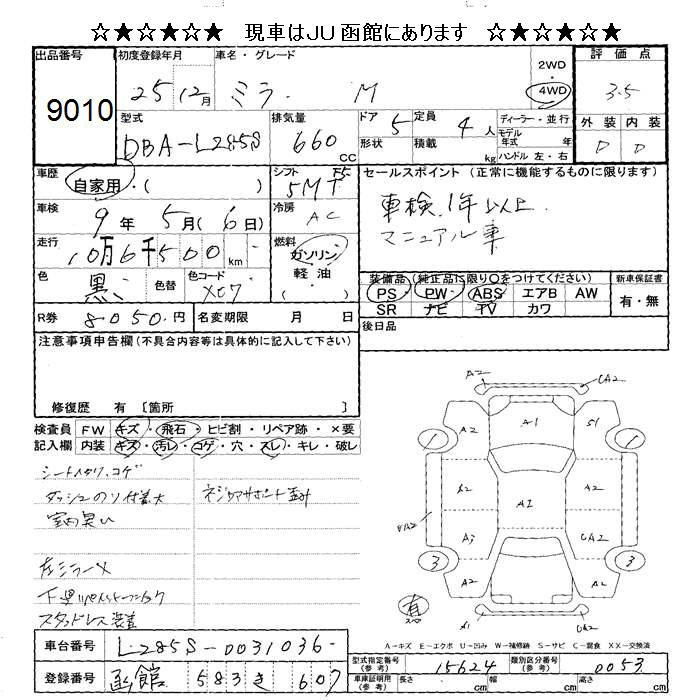 ☆★☆★☆★ 現車はJU函館にあります ☆★☆★☆★
出品番号 9010
初度登録年月 25年12月
車名・グレード ミラ M
2WD 4WD
評価点 3.5
外装 D 内装 D
型式 DBA-L285S
排気量 660 CC
ドア 5 形状
定員 4人 積載 kg
ディーラー・並行
モデル年式 年
ハンドル 左・右
車歴 自家用・( )
シフト F5 5MT
車検 9年5月(6日)
冷房 AC
走行 10万6千500km
燃料 ガソリン 軽油 ( )
色 黒 色替 色コード X07
R券 8050円 名変期限 月 日
セールスポイント (正常に機能するものに限ります)
車検1年以上
マニュアル車
装備品 (純正品に限り○をつけてください)
PS PW ABS エアB AW
SR ナビ TV カワ
新車保証書 有・無
後日品
注意事項申告欄 (不具合内容等は具体的に記入して下さい)
修復歴 有 [箇所 ]
検査員記入欄
FW キズ・飛石・ヒビ割・リペア跡・×要
内装 キズ・汚レ・コゲ・穴・スレ・キレ・破レ
シートスタリ、コゲ
室内臭い
左ミラーメ
スタッドレス装着
A2 UA2
1 A2 A1 S1 1
A2 A1 A2
A3 UA2
3 A2 A2 3
有
A1 UA2
A-キズ E-エクボ U-凹み W-補修跡 S-サビ C-腐食 XX-交換済
車台番号 L285S-0031036
登録番号 函館 583 き 607
型式指定番号 (参考) 15624
類別区分番号 (参考) 0053
車庫証明用 (参考) 長さ cm 幅 cm 高さ cm